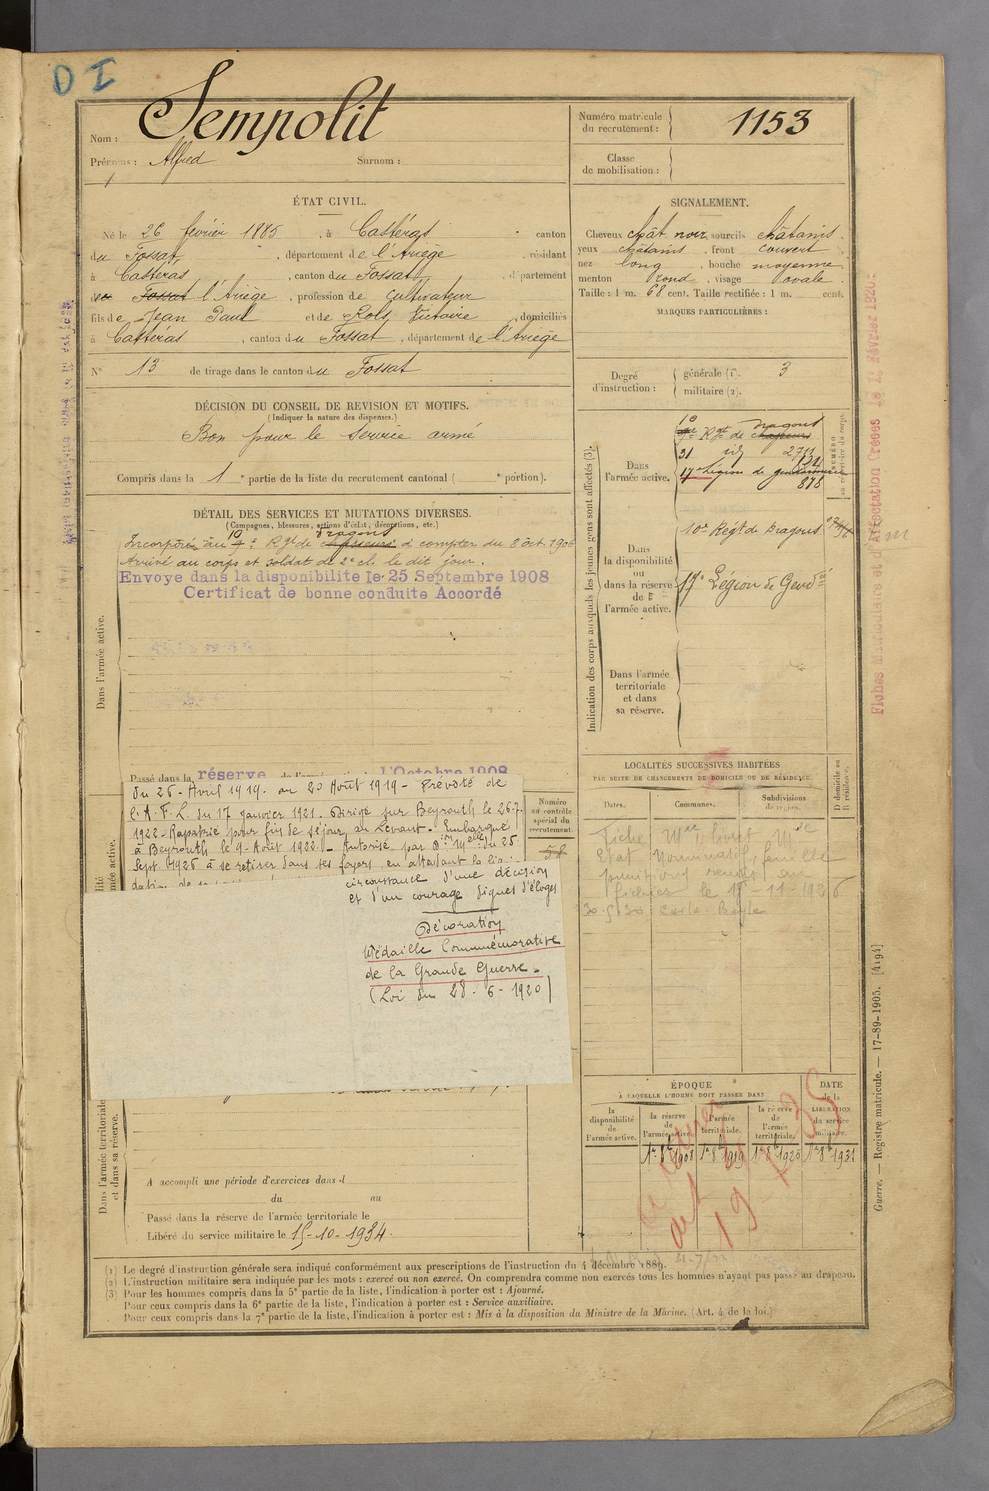 D I
Nom : Sempolit
Prénoms : Alfred Surnom :
Numéro matricule du recrutement : 1153
Classe de mobilisation :
ÉTAT CIVIL.
Né le 26 février 1885, à Castéras canton
du Fossat, département de l'Ariège, résidant
à Castéras, canton du Fossat, département
Fossat l'Ariège, profession de cultivateur
fils de Jean Paul et de Rols Victoire, domiciliés
à Castéras, canton du Fossat, département de l'Ariège
N° 13 de tirage dans le canton du Fossat
SIGNALEMENT.
Cheveux chât noir, sourcils châtains
yeux châtains, front couvert
nez long, bouche moyenne
menton rond, visage ovale.
Taille : 1 m. 68 cent. Taille rectifiée : 1 m. cent.
MARQUES PARTICULIÈRES :
Degré d'instruction : générale (1). 3
militaire (2).
DÉCISION DU CONSEIL DE REVISION ET MOTIFS.
(Indiquer la nature des dispenses.)
Bon pour le service armé
Compris dans la 1e partie de la liste du recrutement cantonal ( e portion).
DÉTAIL DES SERVICES ET MUTATIONS DIVERSES.
(Campagnes, blessures, actions d'éclat, décorations, etc.)
Incorporé au 10 e Rgt de Dragons à compter du 8 oct 1906
Arrivé au corps et soldat de 2e cl. le dit jour.
Envoye dans la disponibilite le 25 Septembre 1908
Certificat de bonne conduite Accordé
Dans l'armée active.
Passé dans la réserve de l'armée 1'Octobre 1908
du 26 - Avril 1919 - au 20 Août 1919 - Prévôté de
l'A.F.L. du 17 janvier 1921. Dirigé sur Beyrouth le 26.7.
1922 - Rapatrié pour fin de séjour au Levant. Embarqué
à Beyrouth le 9 Août 1922 - Autorisé, par Don Mlle du 25
Sept. 1926 à se retirer dans ses foyers en attendant la liqui
circonstance d'une décision
et d'un courage dignes d'éloges
Décoration
Médaille Commémorative
de la Grande Guerre.
(Loi du 28 - 6 - 1920)
Numéro au contrôle spécial du recrutement.
58
Indication des corps auxquels les jeunes gens sont affectés (3).
Dans l'armée active.
10 Rgt de chasseurs Dragons
31 id 2711
17e Légion de gendarmerie
878
NUMÉRO au répertoire du corps.
Dans la disponibilité ou dans la réserve de l'armée active.
10e Régt de Dragons
17e Légion de Gendie
Dans l'armée territoriale et dans sa réserve.
Fiches Matriculaire et d'Affectation Créées le 1r Février 1926.
LOCALITÉS SUCCESSIVES HABITÉES
PAR SUITE DE CHANGEMENTS DE DOMICILE OU DE RÉSIDENCE.
Dates. Communes. Subdivisions de région. D domicile ou R résidence.
Fiche Mle, livret Mle
Etat nominatif, feuille
punitions
30.5.30 Carla-Bayle
ÉPOQUE
À LAQUELLE L'HOMME DOIT PASSER DANS
la disponibilité de l'armée active.
la réserve de l'armée active.
l'armée territoriale.
la réserve de l'armée territoriale.
DATE de la LIBÉRATION du service militaire.
1er 8bre 1908 1er 8bre 1919 1er 8bre 1925 1er 8bre 1931
Dans l'armée territoriale et dans sa réserve.
A accompli une période d'exercices dans l
du au
Passé dans la réserve de l'armée territoriale le
Libéré du service militaire le 15-10-1934.
(1) Le degré d'instruction générale sera indiqué conformément aux prescriptions de l'instruction du 4 décembre 1889.
(2) L'instruction militaire sera indiquée par les mots : exercé ou non exercé. On comprendra comme non exercés tous les hommes n'ayant pas passé au drapeau.
(3) Pour les hommes compris dans la 5e partie de la liste, l'indication à porter est : Ajourné.
Pour ceux compris dans la 6e partie de la liste, l'indication à porter est : Service auxiliaire.
Pour ceux compris dans la 7e partie de la liste, l'indication à porter est : Mis à la disposition du Ministre de la Marine. (Art. 4 de la loi.)
Guerre. — Registre matricule. — 17-89-1905. [4194]